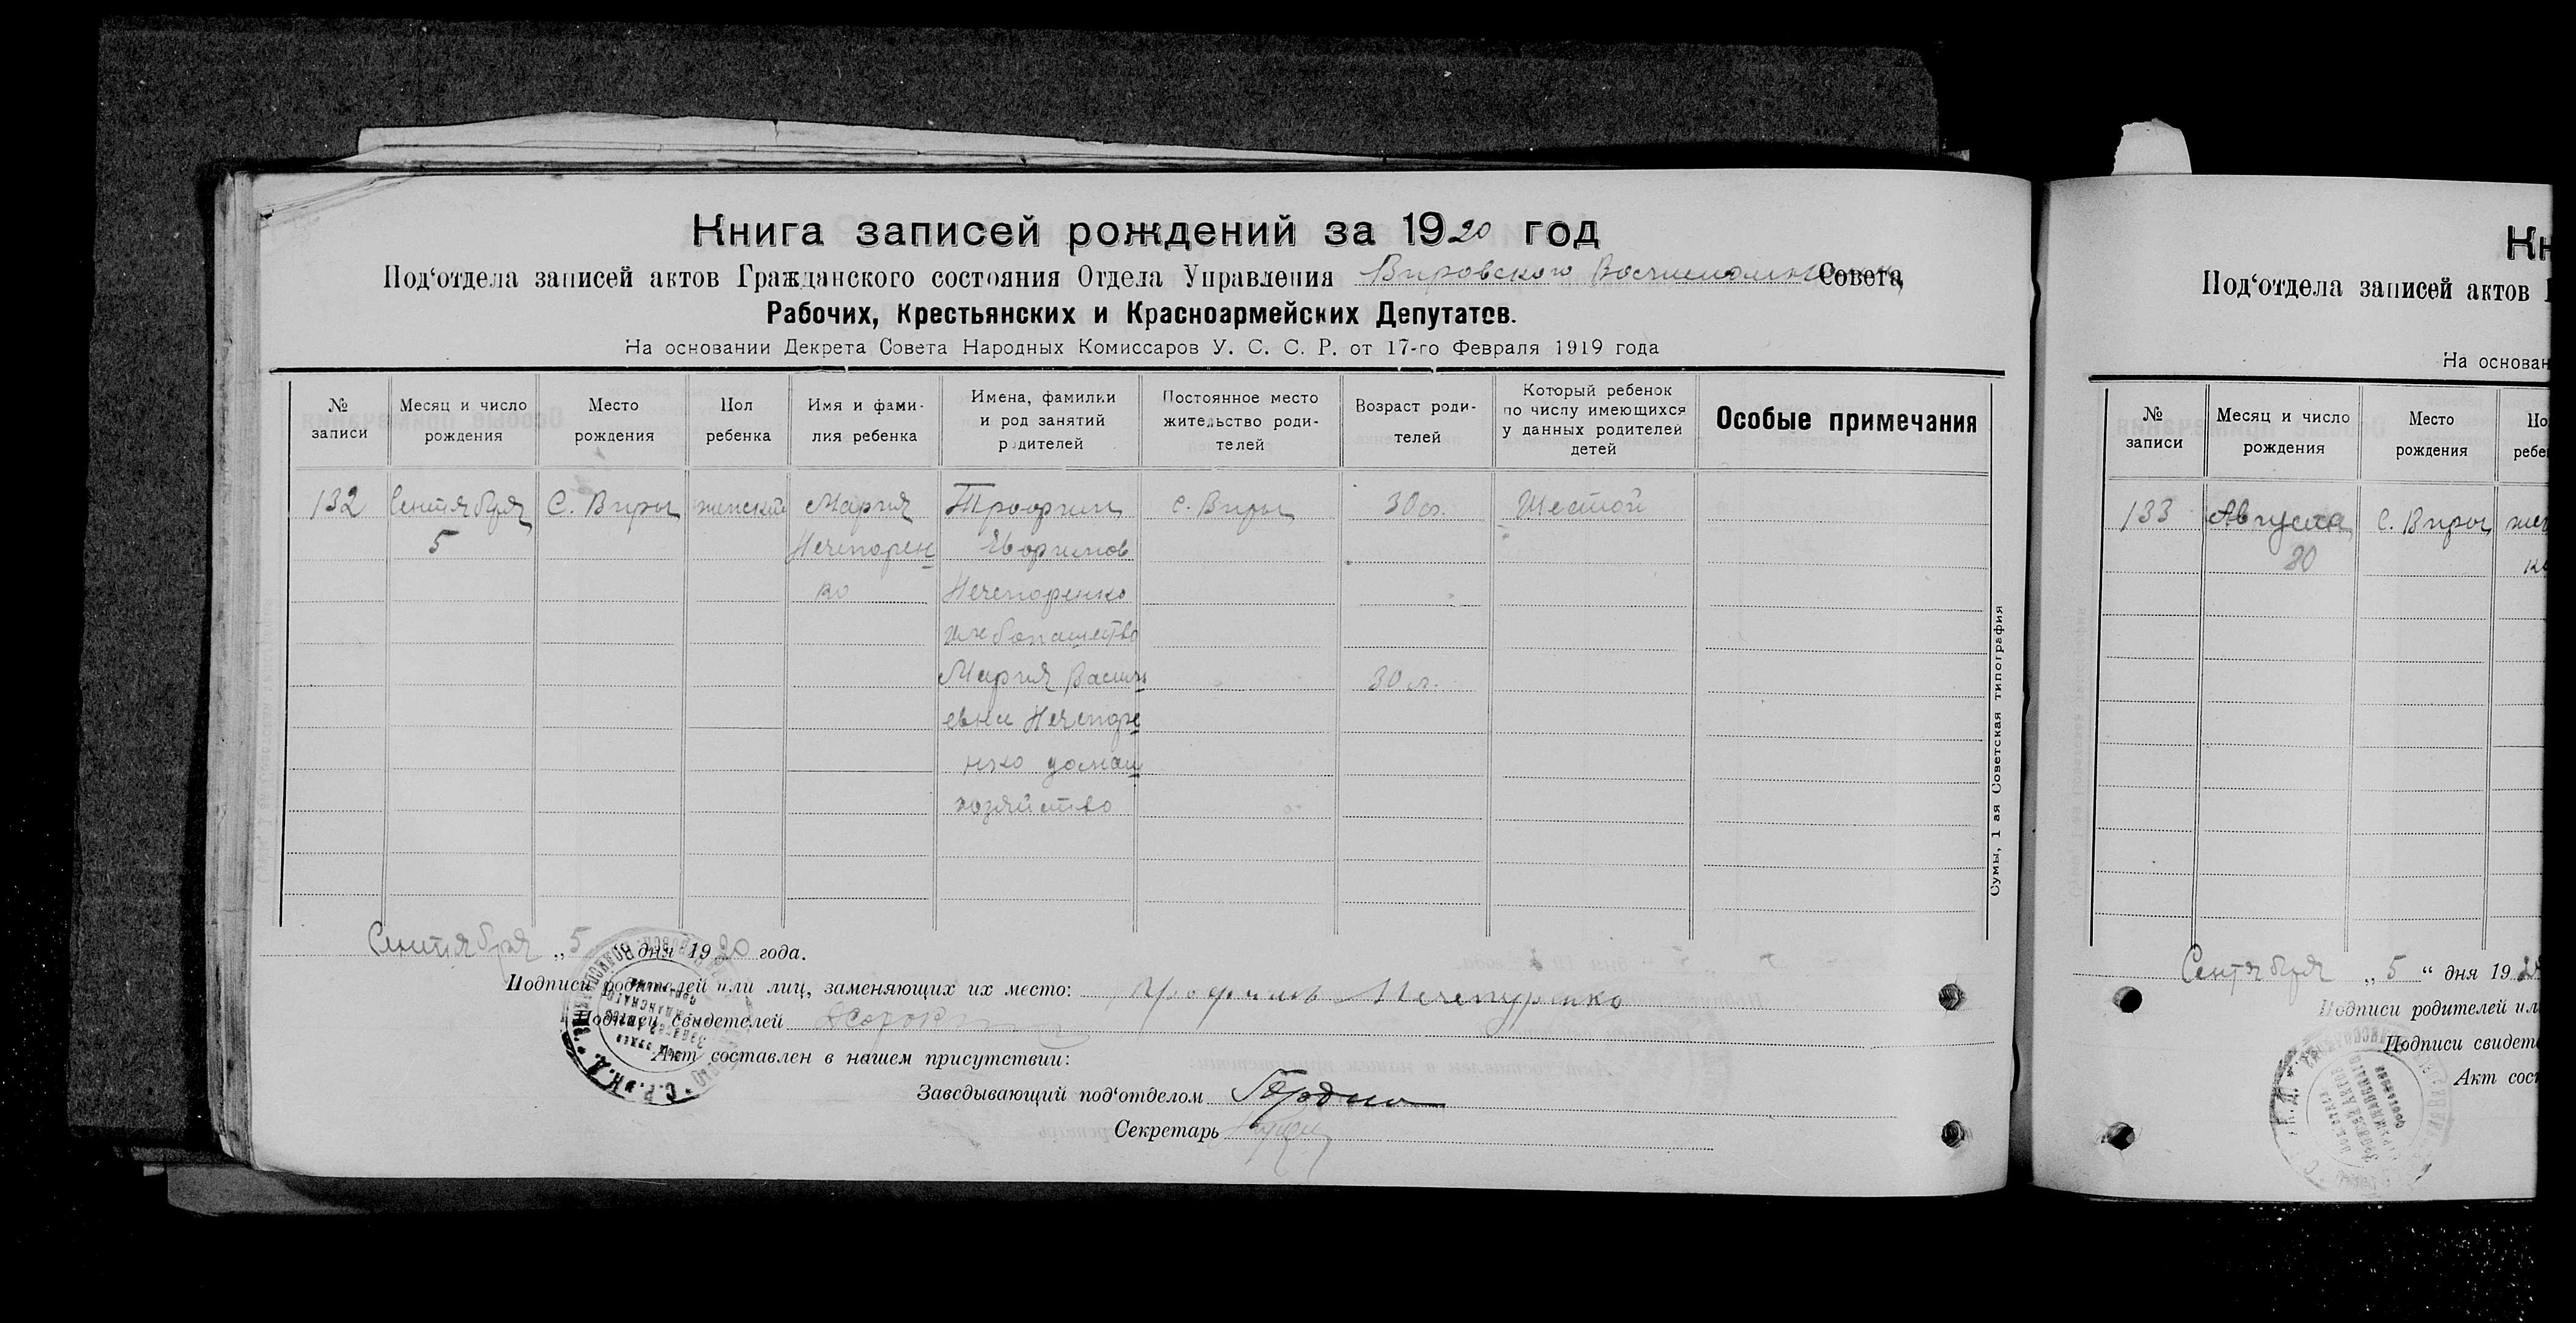 Книга записей рождений за 1920 год
Под‘отдела записей актов Гражданского состояния Отдела Управления Вировского Совета
Рабочих, Крестьянских и Красноармейских Депутатов.
На основании Декрета Совета Народных Комиссаров У. С. С. Р. от 17-го Февраля 1919 года
№
записи
Месяц и число
рождения
Место
рождения
Пол
ребенка
Имя и фами-
лия ребенка
Имена, фамилии
и род занятий
родителей
Постоянное место
жительство роди-
телей
Возраст роди-
телей
Который ребенок
по числу имеющихся
у данных родителей
детей
Особые примечания
132
Сентября
5
С. Виры
женский
Мария
Нечепорен
ко
Трофим
Нечепоренко
Мария Васили
евна Нечепоре
нко домаш
хозяйство
с. Виры
30 л.
30 л.
Шестой
Сумы, 1 ая Советская типография
Сентября „5 дня 1920 года.
Подписи родителей или лиц, заменяющих их место:
Подписи свидетелей
Акт составлен в нашем присутствии:
Заведывающий под‘отделом
Секретарь
С.Р. и К.Д.
Кн
Под‘отдела записей актов
На основан
№
записи
Месяц и число
рождения
Место
рождения
По
ребе
133
Августа
30
с. Виры
жен
Сентября „5“ дня 19
Подписи родителей ил
Подписи свидет
Акт сос